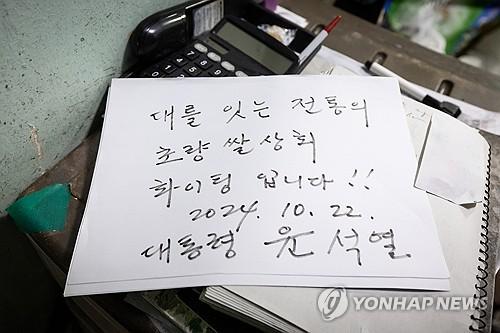 대를 잇는 전통의
초량 쌀상회
화이팅 입니다!!
2024. 10. 22.
대통령 윤석열
YONHAP NEWS